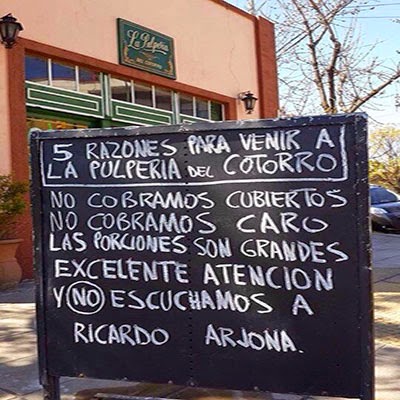 La Pulperia
DEL COTORRO
5 RAZONES PARA VENIR A
LA PULPERIA DEL COTORRO
NO COBRAMOS CUBIERTOS
NO COBRAMOS CARO
LAS PORCIONES SON GRANDES
EXCELENTE ATENCION
Y NO ESCUCHAMOS A
RICARDO ARJONA.